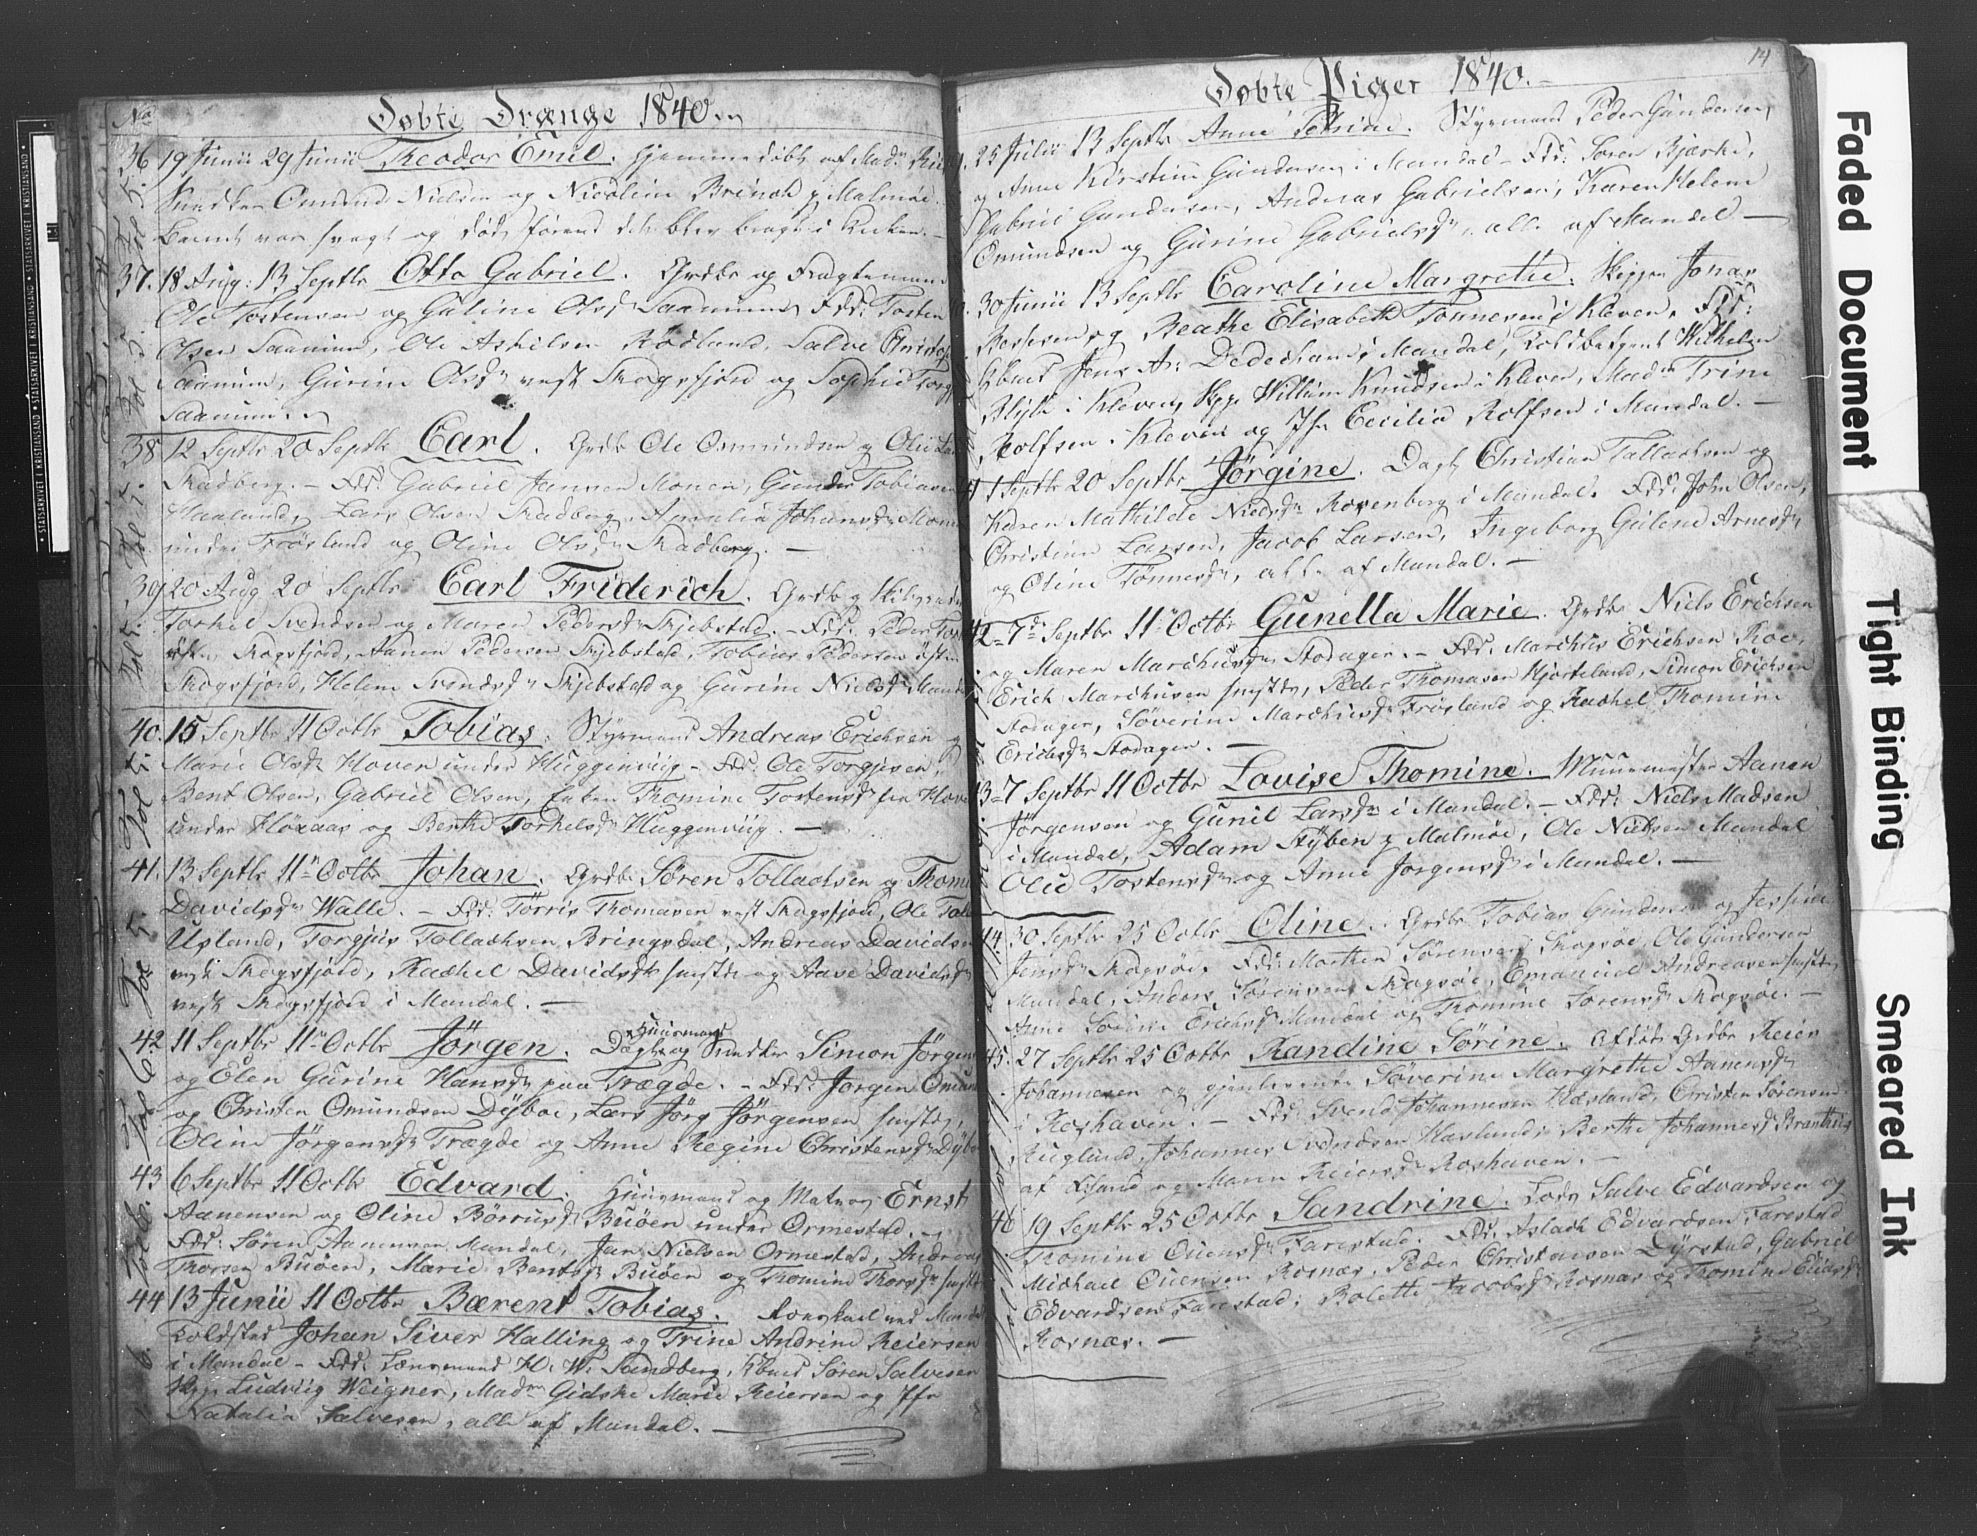 No
Døbte Drænge 1840.
36 19 Junii 29 Junii Theodor Emil. Hjemmedøbt af Mad.
Snedker Omund Nielsen og Nicoline Brinch p. Malmøe.
Barnet var svagt og døde førend det blev bragt i Kirken. -
37. 18 Aug: 13 Septbr Otto Gabriel. Grdbr og Fragtemand
Ole Tostensen og Guline Olsdr Saanum Fdr: Tosten
Olsen Saanum, Ole Askilsen Rødland, Salve
Saanum, Gurine Olsdr vest Skogsfjord og Sophie
Saanum.
38 12 Septbr 20 Septbr Carl. Grdbr Ole Osmundsen og Olie
Skadberg. - Fdr: Gabriel Jansen Monen, Gunder Tobiasen
Haaland, Lars Olsen Skadberg, Amalia Johansdr Monen
under Frøsland og Oline Olsdr Skadberg. -
39 20 Aug 20 Septbr Carl Friderich. Grdbr og
Torkel Svendsen og Maren Pedersdr Skjebstad. - Fdr: Peder
østre Skogsfjord, Aanen Pedersen Skjebstad, Tobias Pedersen østre
Skogsfjord, Helene Svendsdr Skjebstad og Gurine Nielsdr Mandal
40. 15 Septbr 11 Octbr Tobias. Styrmand Andreas Erichsen og
Marie Olsdr Hoven under Huggenviig - Fdr: Ole Torgjusen,
Bent Olsen, Gabriel Olsen, Enken Thomine Tostensdr fra Hove
under Høxaas og Berthe Torkelsdr Huggenviig. -
41. 13 Septbr 11te Octbr Johan. Grdbr Søren Tollachsen og Thomine
Davidsdr Walle. - Fdr: Tørris Thomasen vest Skogsfjord, Ole
Usland, Torgjus Tollachsen Bringsdal, Andreas Davidsen
vest Skogsfjord, Rachel Davidsdr sammestds og Aase Davidsdr
vest Skogsfjord i Mandal. -
42 11 Septbr 11te Octbr Jørgen. Huusmand Dagl. og Snedker Simon Jørgensen
og Elen Gurine Hansdr paa Trægde. - Fdr: Jørgen Omundsen
og Christen Omundsen Dybøe, Lars Jørg Jørgensen sammestds,
Oline Jørgensdr Trægde og Anne Regine Christensdr Dybøe
43 6 Septbr 11 Octbr Edvard. Huusmand og Matros Ernst
Aanensen og Oline Børresdr Buøen under Ormestad. -
Fdr: Søren Aanensen Mandal, Jan Nielsen Ormestad, Andreas
Thorsen Buøen, Marie Bentsdr Buøen og Thomine Thorsdr sammestds
44 13 Junii 11 Octbr Bærent Tobias. Konstituert ved Mandals
Toldsted Johan Siver Halling og Trine Andrine Reiersen
i Mandal - Fdr: Lænsmand H. W. Sandberg, Kbmd Søren Salvesen
Skpp Ludviig Weigner, Madm Gidske Marie Reiersen og Jfr
Natalia Salvesen, alle af Mandal. -
14
Døbte Piger 1840. -
25 Julii 13 Septbr Anne Petrine. Styrmand Peder Gundersen
og Anne Kirstine Gundersen i Mandal - Fdr: Søren Bjerke,
Gabriel Gundersen, Andreas Gabrielsen, Karen Helene
Omundsen og Gurine Gabrielsdr, alle af Mandal -
30 Junii 13 Septbr Caroline Margrethe. Skipper Jonas
og Beathe Elisabeth Tønnesen i Kleven. Fdr:
Kbmd Jens A: Dedechand i Mandal, Toldbetjent Wilhelm
i Kleven, Skpp Willum Knudsen i Kleven, Madm Trine
Rolfsen i Kleven og Jfr Cecilia Rolfsen i Mandal. -
41 1 Septbr 20 Septbr Jørgine. Dagl. Christian Tallachsen og
Karen Mathilde Nielsdr Rosenberg i Mandal. Fdr: John Olsen,
Christian Larsen, Jacob Larsen, Ingeborg Guline Arnesdr
og Oline Tønnesdr, alle af Mandal. -
42 - 7de Septbr 11te Octbr Gunella Marie. Grdbr Niels Erichsen
og Maren Marchusdr Stodager. - Fdr: Marchus Erichsen Roe,
Erich Marchusen sammestds, Peder Thomasen Hjorteland, Simon Erichsen
Stodager, Søverine Marchusdr Frøsland og Rachel Thomine
Erichsdr Stodager. -
43 - 7 Septbr 11 Octbr Lovise Thomine. Muurmester Aanen
Jørgensen og Gunil Larsdr i Mandal. - Fdr: Niels Madsen
i Mandal, Adam Styben p. Malmøe, Ole Nielsen Mandal
Olie Tostensdr og Anne Jørgensdr i Mandal. -
44. 30 Septbr 25 Octbr Oline. Grdbr Tobias Gundersen og Jessine
Jensdr Skogsøe, Fdr: Morthen Sørensen Skogsøe, Ole Gundersen
Mandal, Anders Sørensen Skogsøe, Emanuel Andreasen sammestds
Anne Sofie Erichsdr Mandal og Thomine Sørensdr Skogsøe. -
45. 27 Septbr 25 Octbr Randine Sørine. Afdøde Grdbr Reier
Johannesen og gjenlevende Søverine Margrethe Aanensdr
i Roshaven. - Fdr: Svend Johannesen Haaland, Christen Sørensen
Kuglund, Johannes Svendsen Haaland, Berthe Johannesdr
af Eiland og Maren Reiersdr Roshaven. -
46 19 Septbr 25 Octbr Sandrine. Lods Salve Edvardsen og
Thomine Ouensdr Farestad. Fdr: Aslach Edvardsen Farestad
Michael Ouensen Rosnæs, Peder Christensen Dyrstad, Gabriel
Edvardsen Farestad, Bolette Jacobsdr Rosnæs og Thomine
Rosnæs. -
STATSARKIVET I KRISTIANSAND
Faded Document
Tight Binding
Smeared Ink